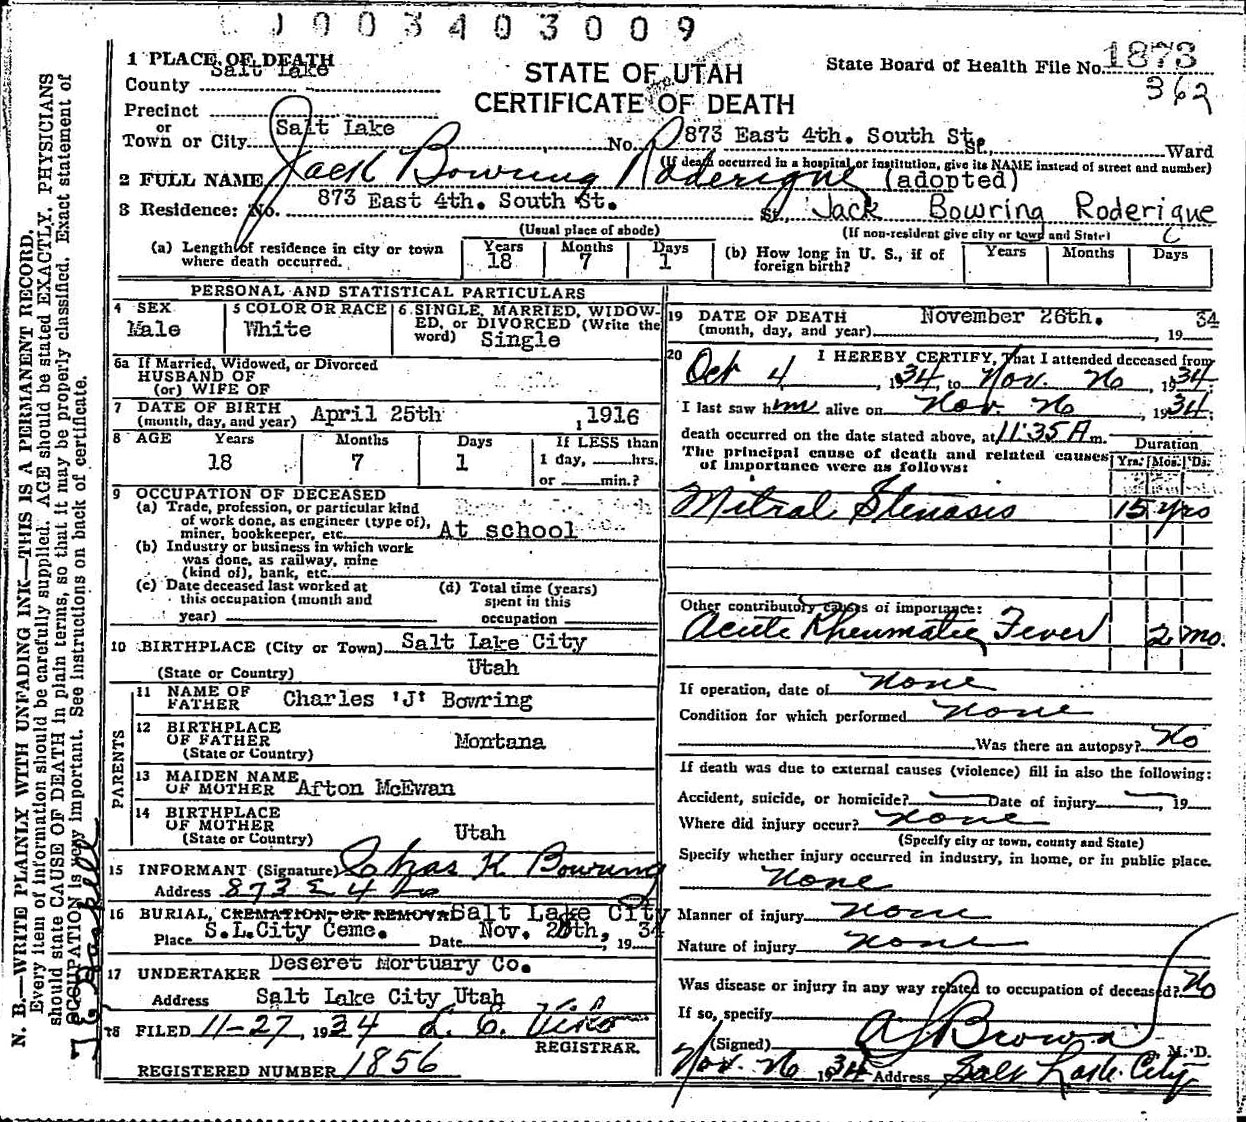 0 0 3 4 0 3 0 0 9
1 PLACE OF DEATH
Salt Lake
County
STATE OF UTAH
CERTIFICATE OF DEATH
State Board of Health File No. 1873
362
Precinct
or
Town or City Salt Lake No. 873 East 4th. South St. St., Ward
(If death occurred in a hospital or institution, give its NAME instead of street and number)
2 FULL NAME Jack Bowring Roderique (adopted)
3 Residence: No. 873 East 4th. South St. St., Jack Bowring Roderique
(Usual place of abode) (If non-resident give city or town and State)
(a) Length of residence in city or town where death occurred. Years 18 Months 7 Days 1
(b) How long in U. S., if of foreign birth? Years Months Days
PERSONAL AND STATISTICAL PARTICULARS
4 SEX
Male
5 COLOR OR RACE
White
6 SINGLE, MARRIED, WIDOWED, or DIVORCED (Write the word) Single
6a If Married, Widowed, or Divorced
HUSBAND OF
(or) WIFE OF
7 DATE OF BIRTH
(month, day, and year) April 25th , 1916
8 AGE Years Months Days If LESS than
18 7 1 1 day, hrs.
or min.?
9 OCCUPATION OF DECEASED
(a) Trade, profession, or particular kind
of work done, as engineer (type of),
miner, bookkeeper, etc. At school
(b) Industry or business in which work
was done, as railway, mine
(kind of), bank, etc.
(c) Date deceased last worked at
this occupation (month and
year)
(d) Total time (years)
spent in this
occupation
10 BIRTHPLACE (City or Town) Salt Lake City
(State or Country) Utah
PARENTS
11 NAME OF
FATHER Charles 'J' Bowring
12 BIRTHPLACE
OF FATHER Montana
(State or Country)
13 MAIDEN NAME
OF MOTHER Afton McEwan
14 BIRTHPLACE
OF MOTHER
(State or Country) Utah
15 INFORMANT (Signature) Chas K Bowring
Address 873 E 4
16 BURIAL, CREMATION, OR REMOVAL Salt Lake City
Place S.L.City Ceme. Date Nov. 2 th, 19 34
17 UNDERTAKER Deseret Mortuary Co.
Address Salt Lake City Utah
18 FILED 11-27, 1934
REGISTRAR.
REGISTERED NUMBER 1856
19 DATE OF DEATH
(month, day, and year) November 26th. , 19 34
20 I HEREBY CERTIFY, That I attended deceased from
Oct 4 , 1934, to Nov. 26 , 1934.
I last saw him alive on Nov. 26 , 1934.
death occurred on the date stated above, at 11:35 A m.
The principal cause of death and related causes
of importance were as follows:
Duration
Yrs. Mos. Ds.
Mitral Stenosis 15 yrs
Other contributory causes of importance:
Acute Rheumatic Fever 2 mo.
If operation, date of none
Condition for which performed none
Was there an autopsy? No
If death was due to external causes (violence) fill in also the following:
Accident, suicide, or homicide? Date of injury , 19
Where did injury occur? none
(Specify city or town, county and State)
Specify whether injury occurred in industry, in home, or in public place.
none
Manner of injury none
Nature of injury none
Was disease or injury in any way related to occupation of deceased? No
If so, specify
(Signed) A J Brown M. D.
Nov. 26 1934 Address Salt Lake City
N. B.—WRITE PLAINLY WITH UNFADING INK—THIS IS A PERMANENT RECORD.
Every item of information should be carefully supplied. AGE should be stated EXACTLY. PHYSICIANS
should state CAUSE OF DEATH in plain terms, so that it may be properly classified. Exact statement of
OCCUPATION is very important. See instructions on back of certificate.